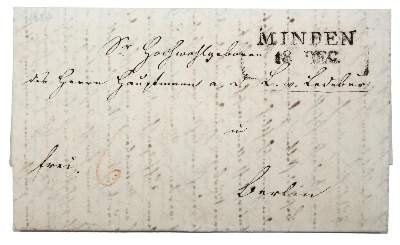 MINDEN
18 DEC
Sr Hochwohlgeboren
des Herrn Hauptmann a. D. L. v. Ledebur
in
frei.
6
Berlin